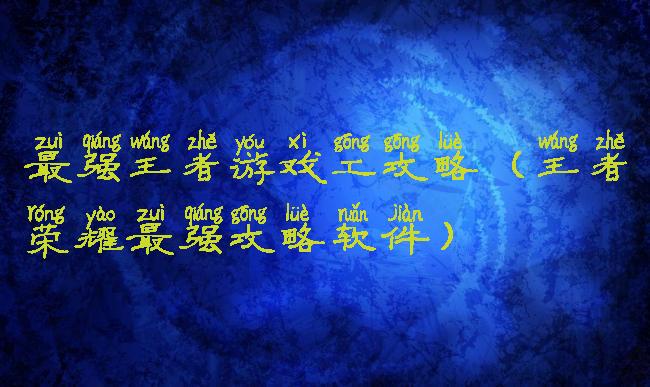 zuì qiáng wáng zhě yóu xì gōng gōng lüè wáng zhě
最强王者游戏工攻略（王者
róng yào zuì qiáng gōng lüè ruǎn jiàn
荣耀最强攻略软件）